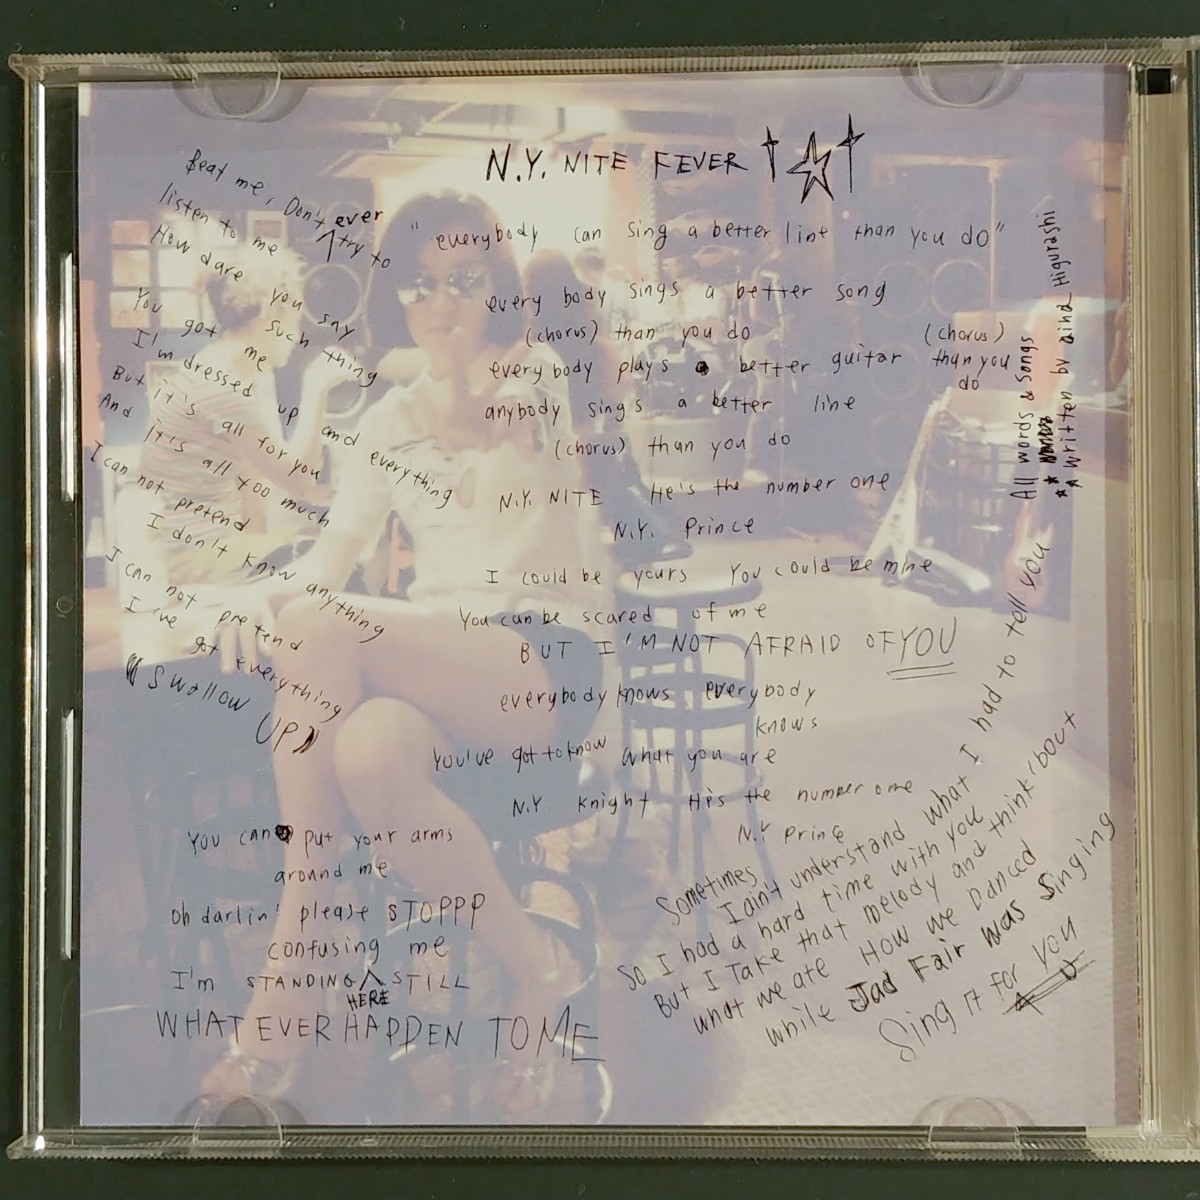 N.Y. NITE FEVER
Beat me, Don't ever try to
listen to me
How dare you say
You got such thing
I'm dressed me up and everything
But it's all for you
And it's all too much
I can not pretend
I don't know anything
I can not pretend
I've got everything
Swallow UP
You can put your arms
around me
Oh darlin' please STOPPP
confusing me
I'm STANDING HERE STILL
WHAT EVER HAPPEN TO ME
"everybody can sing a better line than you do"
every body sings a better song
(chorus) than you do
everybody plays a better guitar (chorus) than you do
anybody sings a better line
(chorus) than you do
N.Y. NITE He's the number one
N.Y. Prince
I could be yours You could be mine
You can be scared of me
BUT I'M NOT AFRAID OF YOU
everybody knows everybody
knows
You've got to know what you are
N.Y. knight He's the number one
N.Y prince
Sometimes
I ain't understand what I had to tell you
So I had a hard time with you
But I Take that melody and think 'bout
what we ate How we Danced
while Jad Fair was Singing
Sing it for you
All words & Songs
written by aind Higurashi